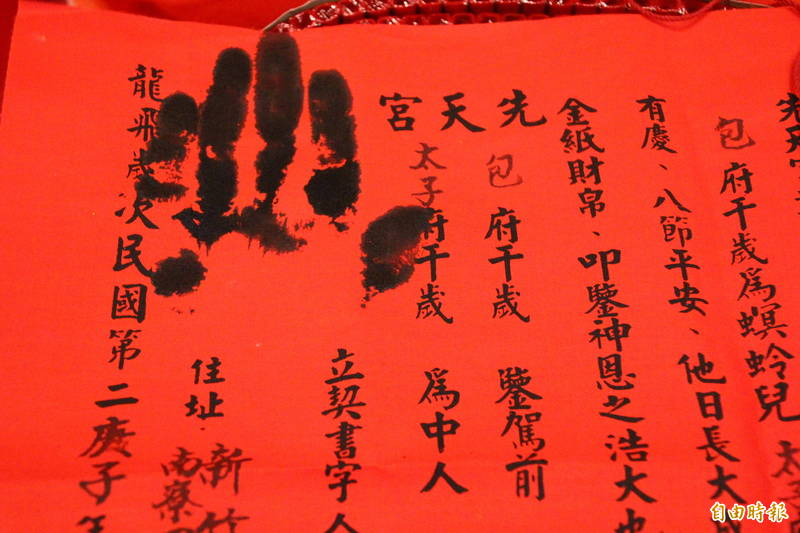 先天宮
包府千歲為螟蛉兒太
有慶、八節平安、他日長大
金紙財帛、叩鑒神恩之浩大也
先天宮
包府千歲 鑒駕前
太子府千歲 為中人
立契書字人
住址 新竹
南寮
龍飛歲次民國第二庚子年
自由時報